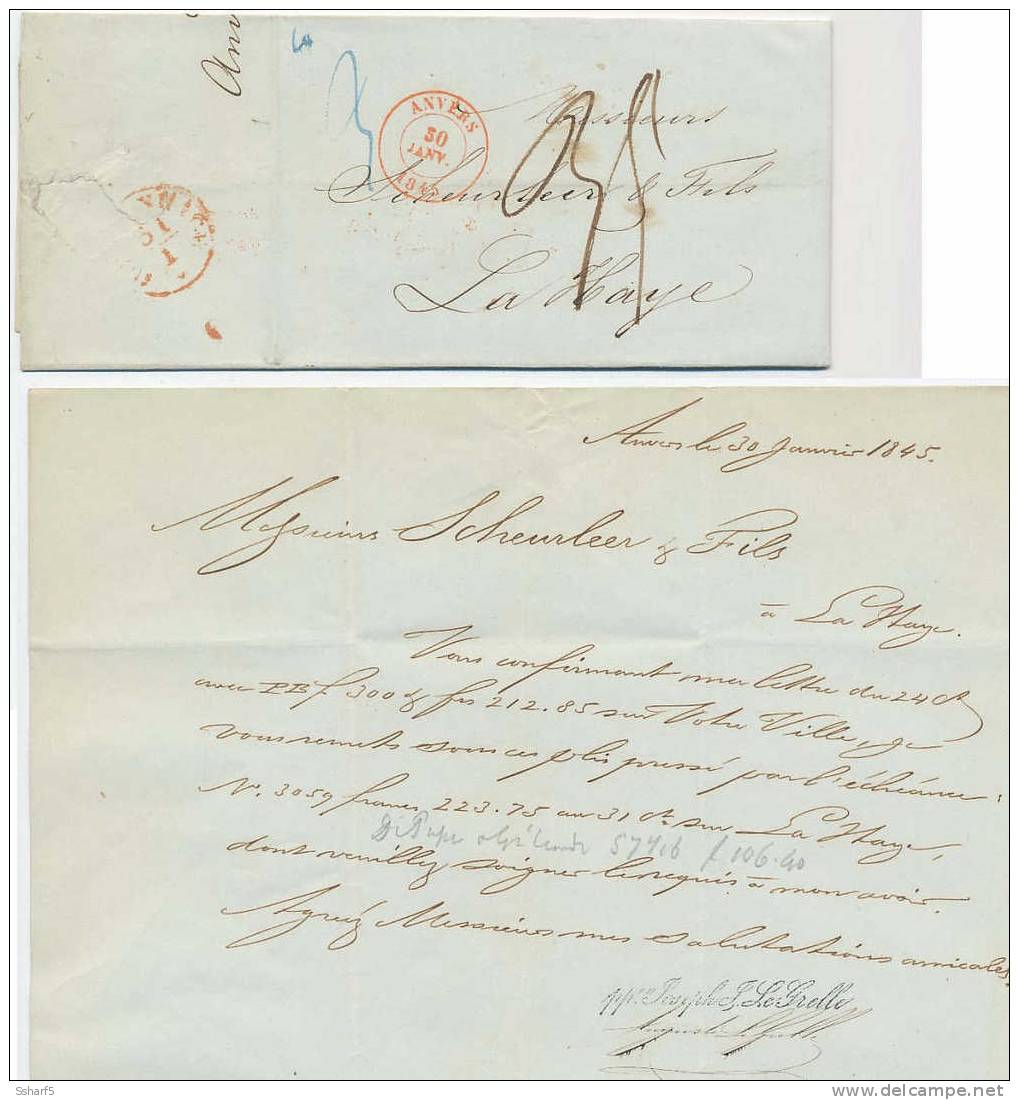 Anv
ANVERS
30
JANV.
1845
31
1
Messieurs
Scheurleer & Fils
La Haye
Anvers le 30 Janvier 1845.
Messieurs Scheurleer & Fils
à La Haye.
Vous confirmant ma lettre du 24 ct
avec PB f. 300 & frs 212.85 sur Votre Ville, je
vous remets sous ce pli pressé par l'échéance:
No. 3059 francs 223.75 au 31 ct sur La Haye,
57416 f 106.40
dont veuillez soigner le requis à mon avoir.
Agréez Messieurs mes salutations amicales
ppon Joseph J. Le Grelle
Ssharf5
delcampe.net